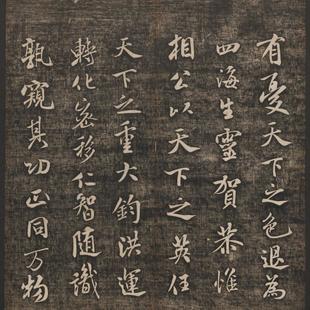 有憂天下之色退為
四海生靈賀恭惟
相公以天下之英任
天下之重大鈞洪運
轉化密移仁智随識
孰窺其功正同万物